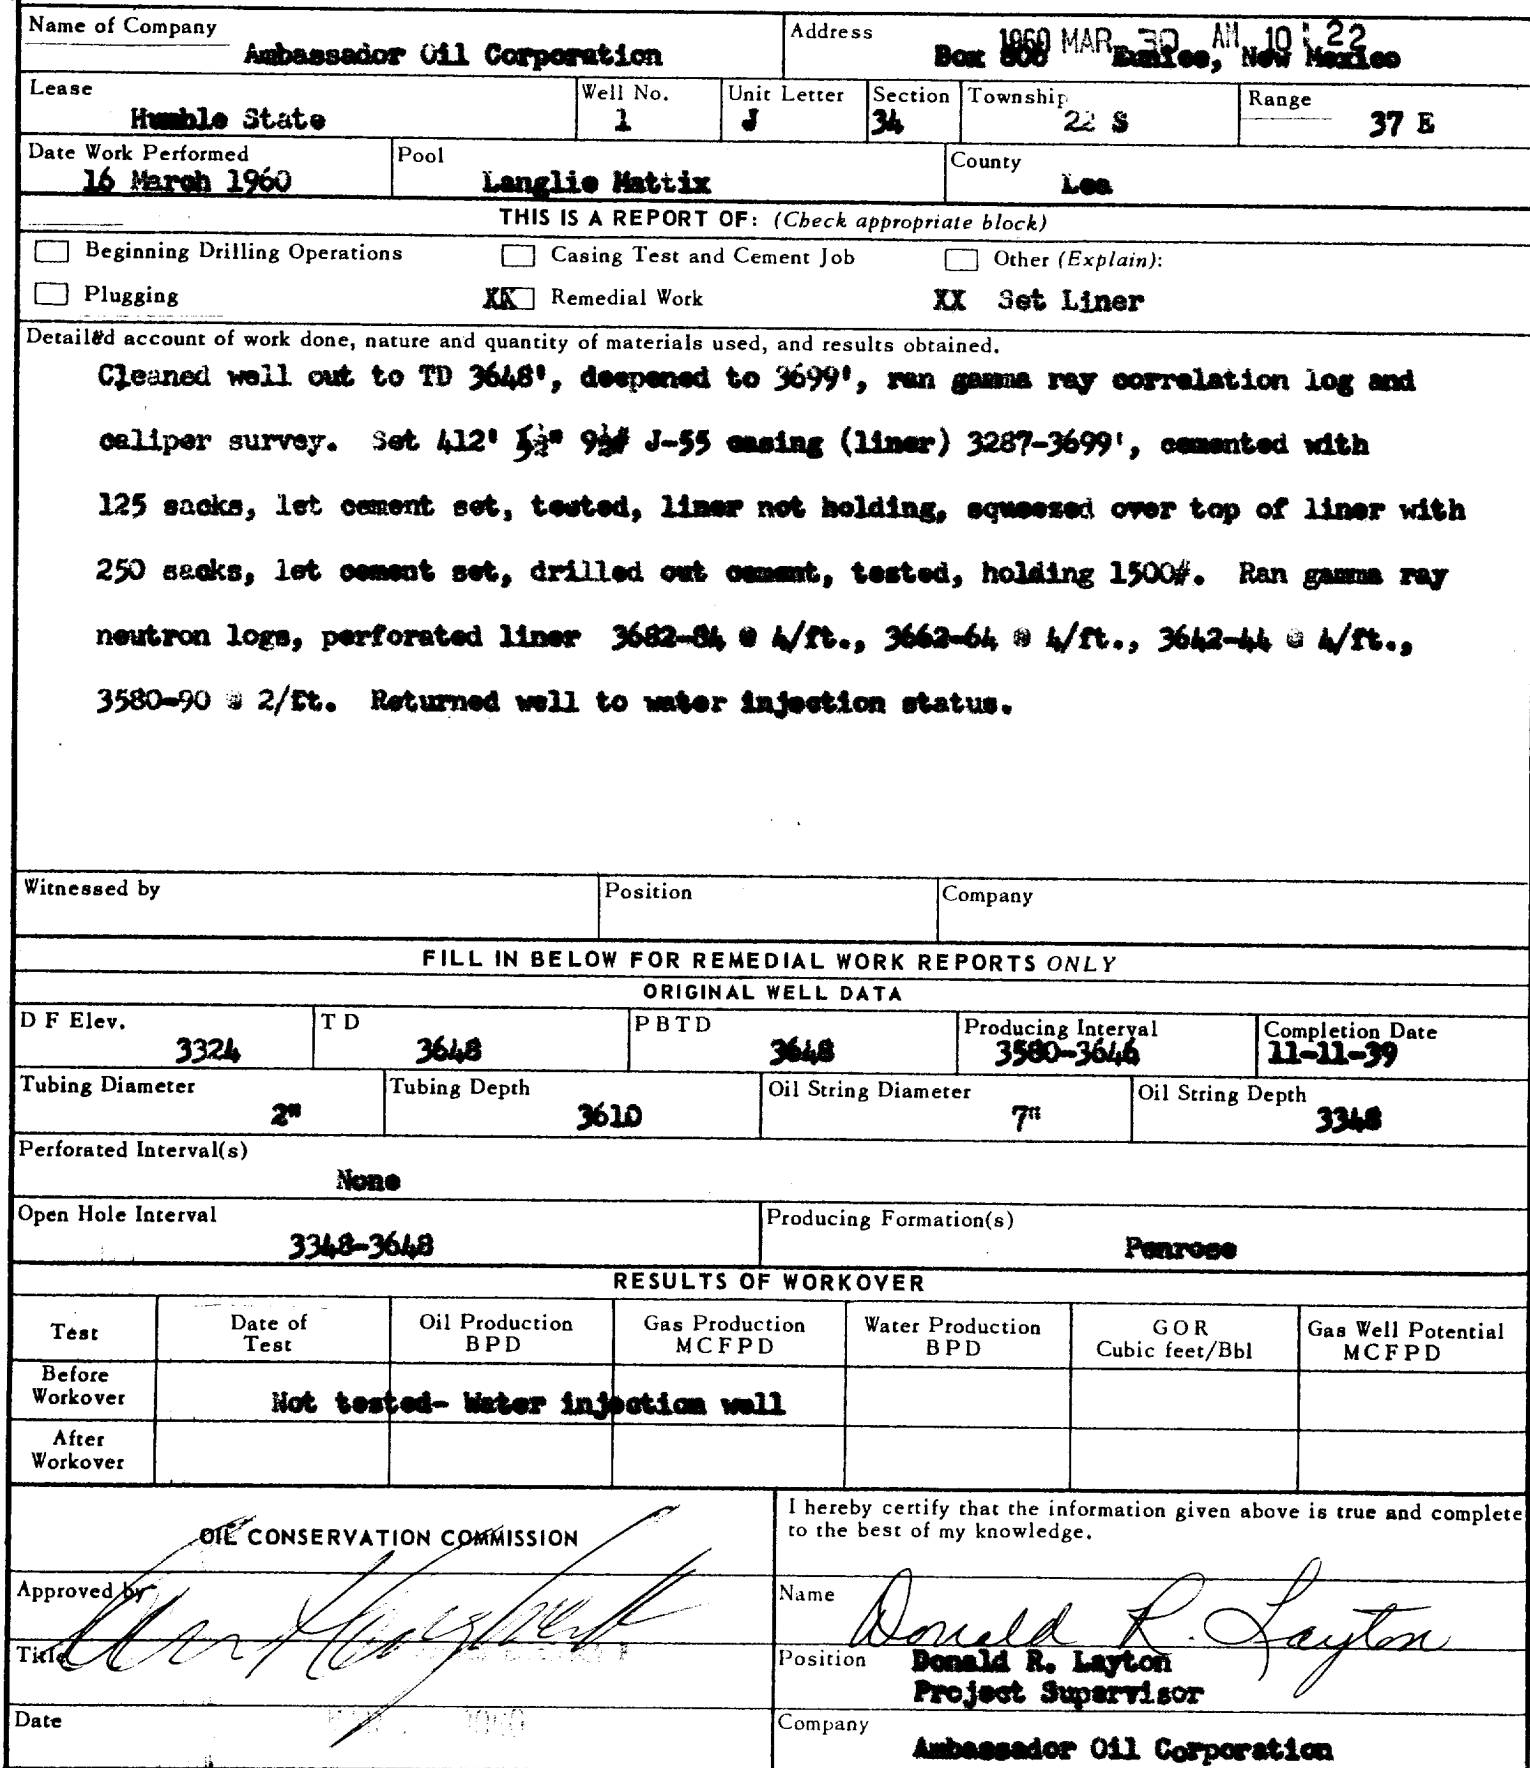 Name of Company Ambassador Oil Corporation Address Box 808 Eunice, New Mexico
1960 MAR 30 AM 10:22
Lease Humble State Well No. 1 Unit Letter J Section 34 Township 22 S Range 37 E
Date Work Performed 16 March 1960 Pool Langlie Mattix County Lea
THIS IS A REPORT OF: (Check appropriate block)
Beginning Drilling Operations Casing Test and Cement Job Other (Explain):
Plugging XX Remedial Work XX Set Liner
Detailed account of work done, nature and quantity of materials used, and results obtained.
Cleaned well out to TD 3648', deepened to 3699', ran gamma ray correlation log and
caliper survey. Set 412' 9½# J-55 casing (liner) 3287-3699', cemented with
125 sacks, let cement set, tested, liner not holding, squeezed over top of liner with
250 sacks, let cement set, drilled out cement, tested, holding 1500#. Ran gamma ray
neutron logs, perforated liner 3682-84 @ 4/ft., 3662-64 @ 4/ft., 3642-44 @ 4/ft.,
3580-90 @ 2/ft. Returned well to water injection status.
Witnessed by Position Company
FILL IN BELOW FOR REMEDIAL WORK REPORTS ONLY
ORIGINAL WELL DATA
D F Elev. 3324 T D 3648 P B T D 3648 Producing Interval 3580-3646 Completion Date 11-11-39
Tubing Diameter 2" Tubing Depth 3610 Oil String Diameter 7" Oil String Depth 3348
Perforated Interval(s)
None
Open Hole Interval 3348-3648 Producing Formation(s) Penrose
RESULTS OF WORKOVER
Test Date of Test Oil Production BPD Gas Production MCFPD Water Production BPD GOR Cubic feet/Bbl Gas Well Potential MCFPD
Before Workover Not tested- Water injection well
After Workover
OIL CONSERVATION COMMISSION
I hereby certify that the information given above is true and complete
to the best of my knowledge.
Approved by
Name Donald R. Layton
Title
Position Donald R. Layton
Project Supervisor
Date 1960
Company Ambassador Oil Corporation